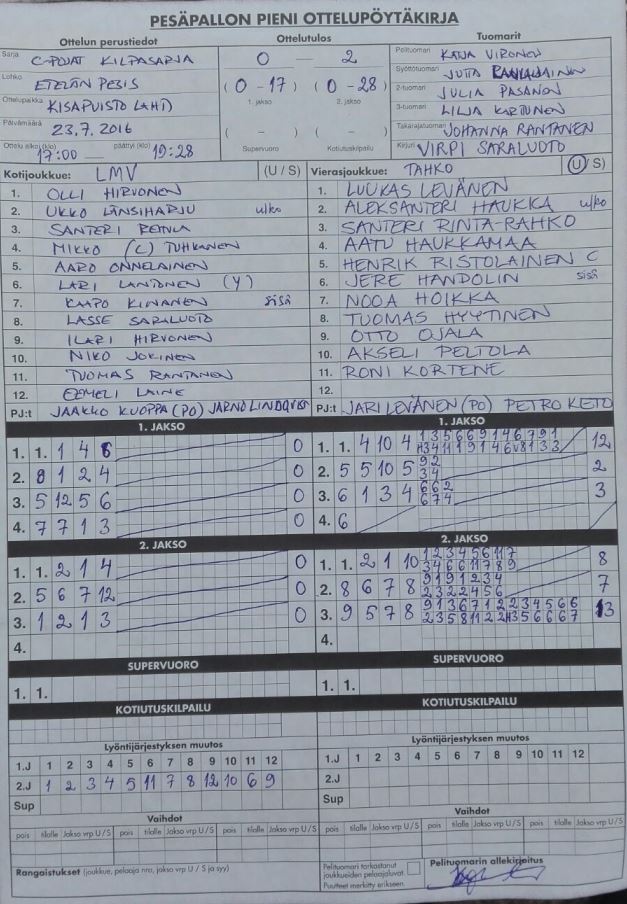 PESÄPALLON PIENI OTTELUPÖYTÄKIRJA
Ottelun perustiedot
Sarja C-POJAT KILPASARJA
Lohko ETELÄN PESIS
Ottelupaikka KISAPUISTO LAHTI
Päivämäärä 23.7. 2016
Ottelu alkoi (klo) 17:00 — päättyi (klo) 19:28
Ottelutulos
0 — 2
(0-17) (0-28)
1. jakso 2. jakso
( - ) ( - )
Supervuoro Kotiutuskilpailu
Tuomarit
Pelituomari KATJA VIRONEN
Syöttötuomari JUTTA
2-tuomari JULIA PASANEN
3-tuomari LILJA KARTUNEN
Takarajatuomari JOHANNA RANTANEN
Kirjuri VIRPI SARALUOTO
Kotijoukkue: LMV (U / S)
1. OLLI HIRVONEN
2. UKKO LÄNSIHARJU ulko
3. SANTERI
4. MIKKO (C) TUHKANEN
5. AARO ONNELAINEN
6. LARI LANTONEN (Y)
7. KAAPO KINANEN sisä
8. LASSE SARALUOTO
9. ILARI HIRVONEN
10. NIKO JOKINEN
11. TUOMAS RANTANEN
12. EEMELI LAINE
PJ:t JAAKKO KUOPPA (PO) JARNO LINDQVIST
Vierasjoukkue: TAHKO (U / S)
1. LUUKAS LEVÄNEN
2. ALEKSANTERI HAUKKA ulko
3. SANTERI RINTA-RAHKO
4. AATU HAUKKAMAA
5. HENRIK RISTOLAINEN C
6. JERE HANDOLIN sisä
7. NOOA HOIKKA
8. TUOMAS HYYTINEN
9. OTTO OJALA
10. AKSELI PELTOLA
11. RONI KORTENE
12.
PJ:t JARI LEVÄNEN (PO) PETRO KETO
1. JAKSO
1. 1. 1 4 6 0
2. 8 1 2 4 0
3. 5 12 5 6 0
4. 7 7 1 3 0
2. JAKSO
1. 1. 2 1 4 0
2. 5 6 7 12 0
3. 1 2 1 3 0
4.
SUPERVUORO
1. 1.
KOTIUTUSKILPAILU
1. JAKSO
1. 1. 4 10 4 12
2. 5 5 10 5 9 2 2
3 4
3. 6 1 3 4 6 6 2 3
6 7 4
4. 6
2. JAKSO
1. 1. 2 1 10 1 2 3 4 5 6 11 7 8
3 4 6 6 11 7 8 9
2. 8 6 7 8 9 1 9 1 2 3 4 7
2 3 2 2 4 5 6
3. 9 5 7 8 9 1 3 6 7 1 2 2 3 4 5 6 6 13
4.
SUPERVUORO
1. 1.
KOTIUTUSKILPAILU
Lyöntijärjestyksen muutos
1.J 1 2 3 4 5 6 7 8 9 10 11 12
2.J 1 2 3 4 5 11 7 8 12 10 6 9
Sup
Vaihdot
pois tilalle Jakso vrp U/S pois tilalle Jakso vrp U/S pois tilalle Jakso vrp U/S
Lyöntijärjestyksen muutos
1.J 1 2 3 4 5 6 7 8 9 10 11 12
2.J
Sup
Vaihdot
pois tilalle Jakso vrp U/S pois tilalle Jakso vrp U/S pois tilalle Jakso vrp U/S
Rangaistukset (joukkue, pelaaja nro, jakso vrp U / S ja syy)
Pelituomari tarkastanut
joukkueiden pelaajaluvat.
Puutteet merkitty erikseen.
Pelituomarin allekirjoitus